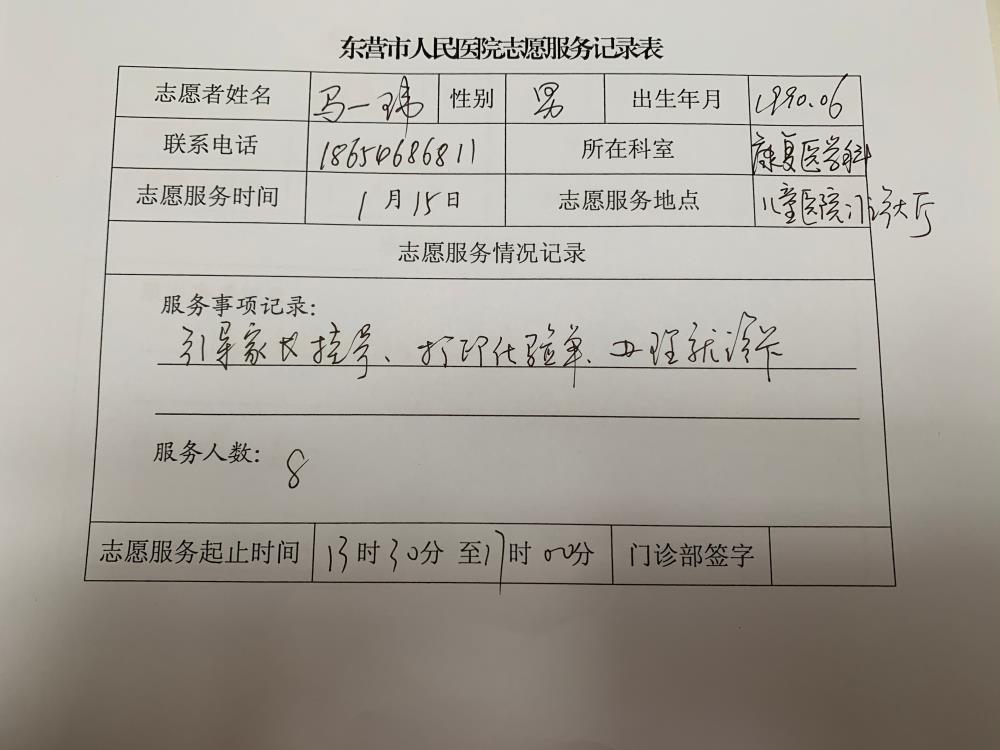 东营市人民医院志愿服务记录表
志愿者姓名 马一玮 性别 男 出生年月 1990.06
联系电话 18654686811 所在科室 康复医学科
志愿服务时间 1月15日 志愿服务地点 儿童医院门诊大厅
志愿服务情况记录
服务事项记录:
引导家长挂号、打印化验单、办理就诊卡
服务人数: 8
志愿服务起止时间 13时30分 至17时00分 门诊部签字